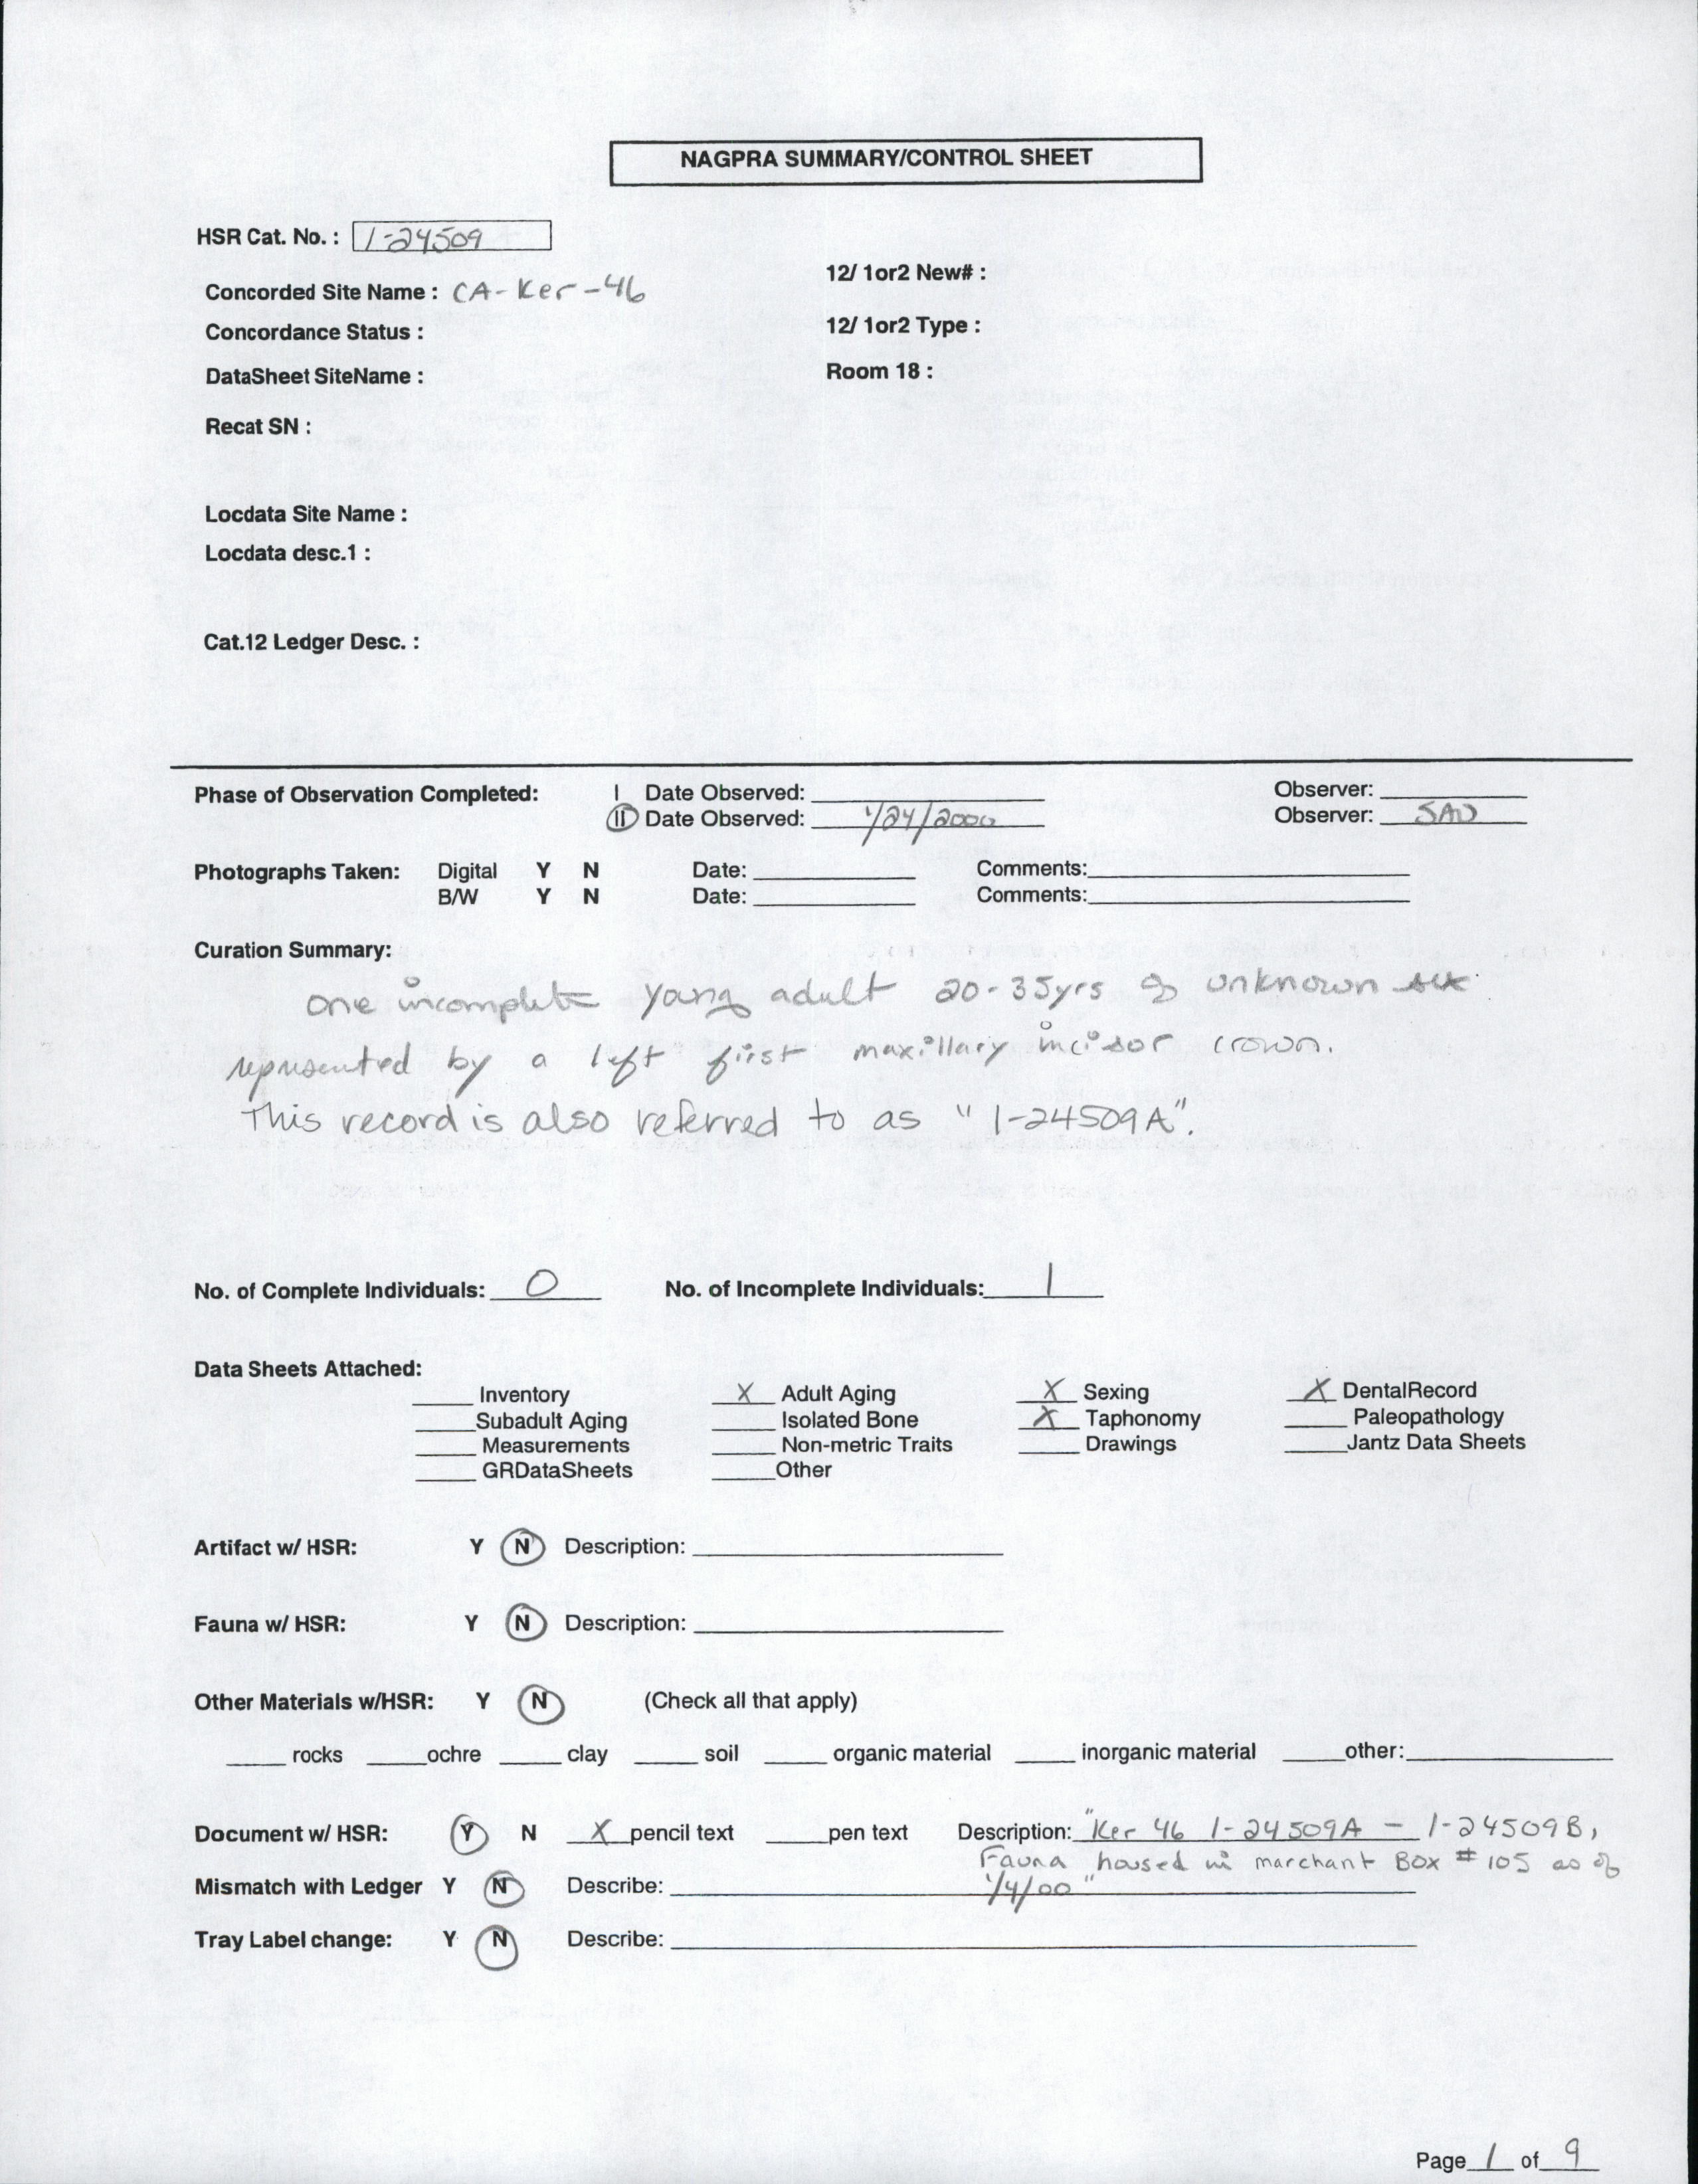 NAGPRA SUMMARY/CONTROL SHEET
HSR Cat. No. : 1-24509
12/ 1or2 New# :
Concorded Site Name : CA-Ker-46
12/ 1or2 Type :
Concordance Status :
Room 18 :
DataSheet SiteName :
Recat SN :
Locdata Site Name :
Locdata desc.1 :
Cat.12 Ledger Desc. :
Phase of Observation Completed: I Date Observed: Observer:
II Date Observed: 1/24/2000 Observer: SAD
Photographs Taken: Digital Y N Date: Comments:
B/W Y N Date: Comments:
Curation Summary:
one incomplete young adult 20-35yrs of unknown sex
represented by a left first maxillary incisor crown.
This record is also referred to as "1-24509A".
No. of Complete Individuals: 0 No. of Incomplete Individuals: 1
Data Sheets Attached:
Inventory X Adult Aging X Sexing X DentalRecord
Subadult Aging Isolated Bone X Taphonomy Paleopathology
Measurements Non-metric Traits Drawings Jantz Data Sheets
GRDataSheets Other
Artifact w/ HSR: Y N Description:
Fauna w/ HSR: Y N Description:
Other Materials w/HSR: Y N (Check all that apply)
rocks ochre clay soil organic material inorganic material other:
Document w/ HSR: Y N X pencil text pen text Description: "Ker 46 1-24509A - 1-24509B,
Fauna housed in marchant Box #105 as of
Mismatch with Ledger Y N Describe: 1/4/00"
Tray Label change: Y N Describe:
Page 1 of 9